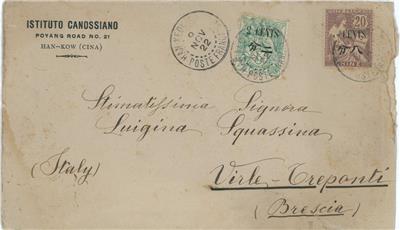 ISTITUTO CANOSSIANO
POYANG ROAD NO. 21
HAN-KOW (CINA)
9
NOV
22
POSTE FRANÇ
2 CENTS
分二
20
CENTS
分八
Stimatissima Signora
Luigina Squassina
(Italy)
Virle-Treponti
(Brescia)